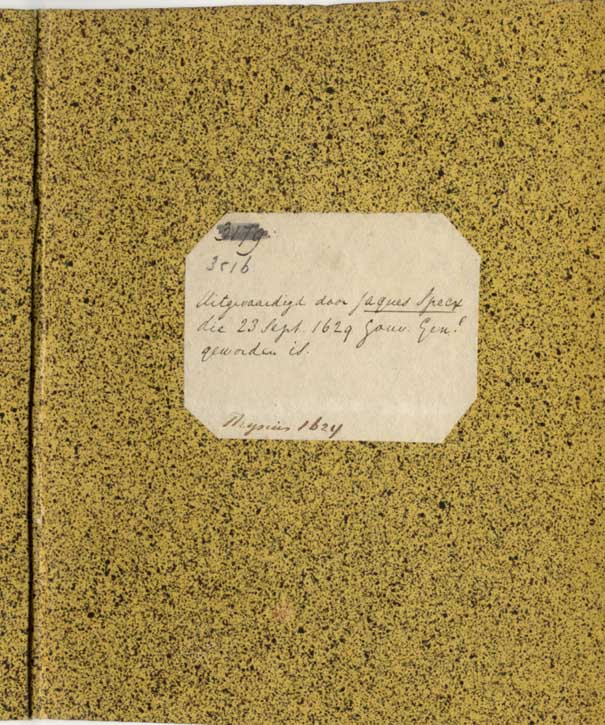 3179.
3516
Uitgevaardigd door Jaques Specx
die 23 Sept. 1629 Gouv. Genl.
geworden is.
Thysius 1624